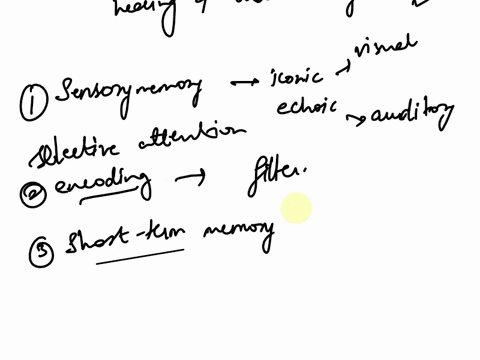 healing of
① Sensory memory → iconic → visual
echoic → auditory
selective attention
② encoding → filter.
③ Short-term memory